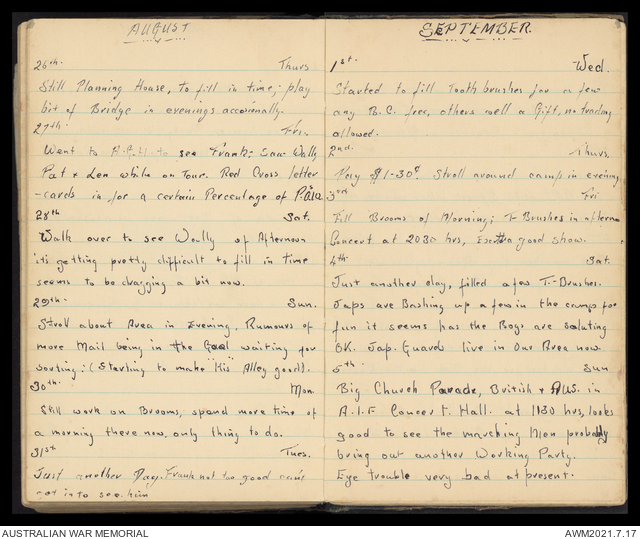 AUGUST
26th. Thurs
Still Planning House, To fill in time; play
bit of Bridge in evenings accasionally.
27th. Fri.
Went to A.G.H to see Frank; Saw Wally
Pat & Len while on Tour. Red Cross letter
-cards in for a certain Percentage of P.O.W.
28th Sat.
Walk over to see Wally of Afternoon
its getting pretty difficult to fill in time
seems to be dragging a bit now.
29th. Sun.
Stroll about Area in Evening, Rumours of
more Mail being in the Gaol waiting for
sorting: (Starting to make "Kis" Alley good).
30th. Mon.
Still work on Brooms, spend more time of
a morning there now, only thing to do.
31st Tues.
Just another Day. Frank not too good can't
get in to see him
SEPTEMBER.
1st. Wed.
Started to fill Tooth brushes for a few
any B.C. free, others well a Gift, no trading
allowed.
2nd. Thurs.
Pay $1-30¢. Stroll around camp in evening
3rd Fri
Fill Brooms of Morning; T- Brushes in afternoon
Concert at 2030 hrs, Extra good show.
4th Sat.
Just another day, filled a few T.-Brushes.
Japs are Bashing up a few in the camp for
fun it seems has the Boys are saluting
OK. Jap. Guard live in Our Area now
5th. Sun
Big Church Parade, British & AUS. in
A.I.F Concert. Hall. at 1130 hrs, looks
good to see the marching Men probably
bring out another Working Party.
Eye trouble very bad at present.
AUSTRALIAN WAR MEMORIAL
AWM2021.7.17